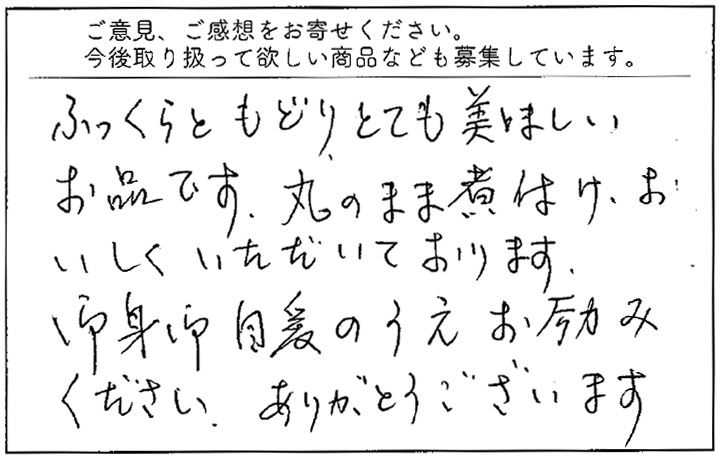 ご意見、ご感想をお寄せください。
今後取り扱って欲しい商品なども募集しています。
ふっくらともどり、とても美味しい
お品です。丸のまま煮付け、お
いしくいただいております。
御身御自愛のうえお励み
ください。ありがとうございます